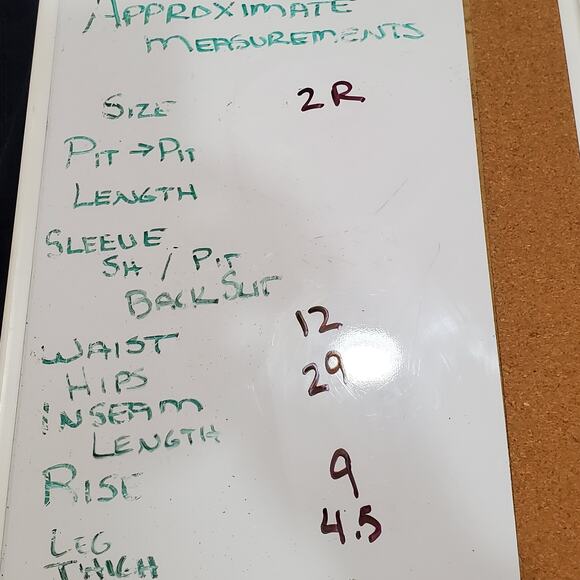 APPROXIMATE
MEASUREMENTS
SIZE 2R
PIT → PIT
LENGTH
SLEEVE
SH / PIT
BACK SLIT
WAIST 12
HIPS 29
INSEAM
LENGTH
RISE 9
LEG 4.5
THIGH